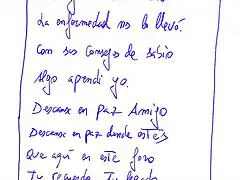 La enfermedad nos lo llevó.
Con sus Consejos de sabio
Algo aprendi yo.
Descansa en paz Amigo
Descansa en paz donde estés
Que aqui en este foro
Tu recuerdo, Tu legado